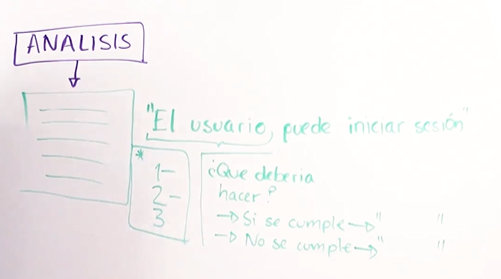 ANALISIS
"El usuario, puede iniciar sesión"
*
1-
2-
3
¿Que deberia
hacer?
→ Si se cumple → " "
→ No se cumple → " "